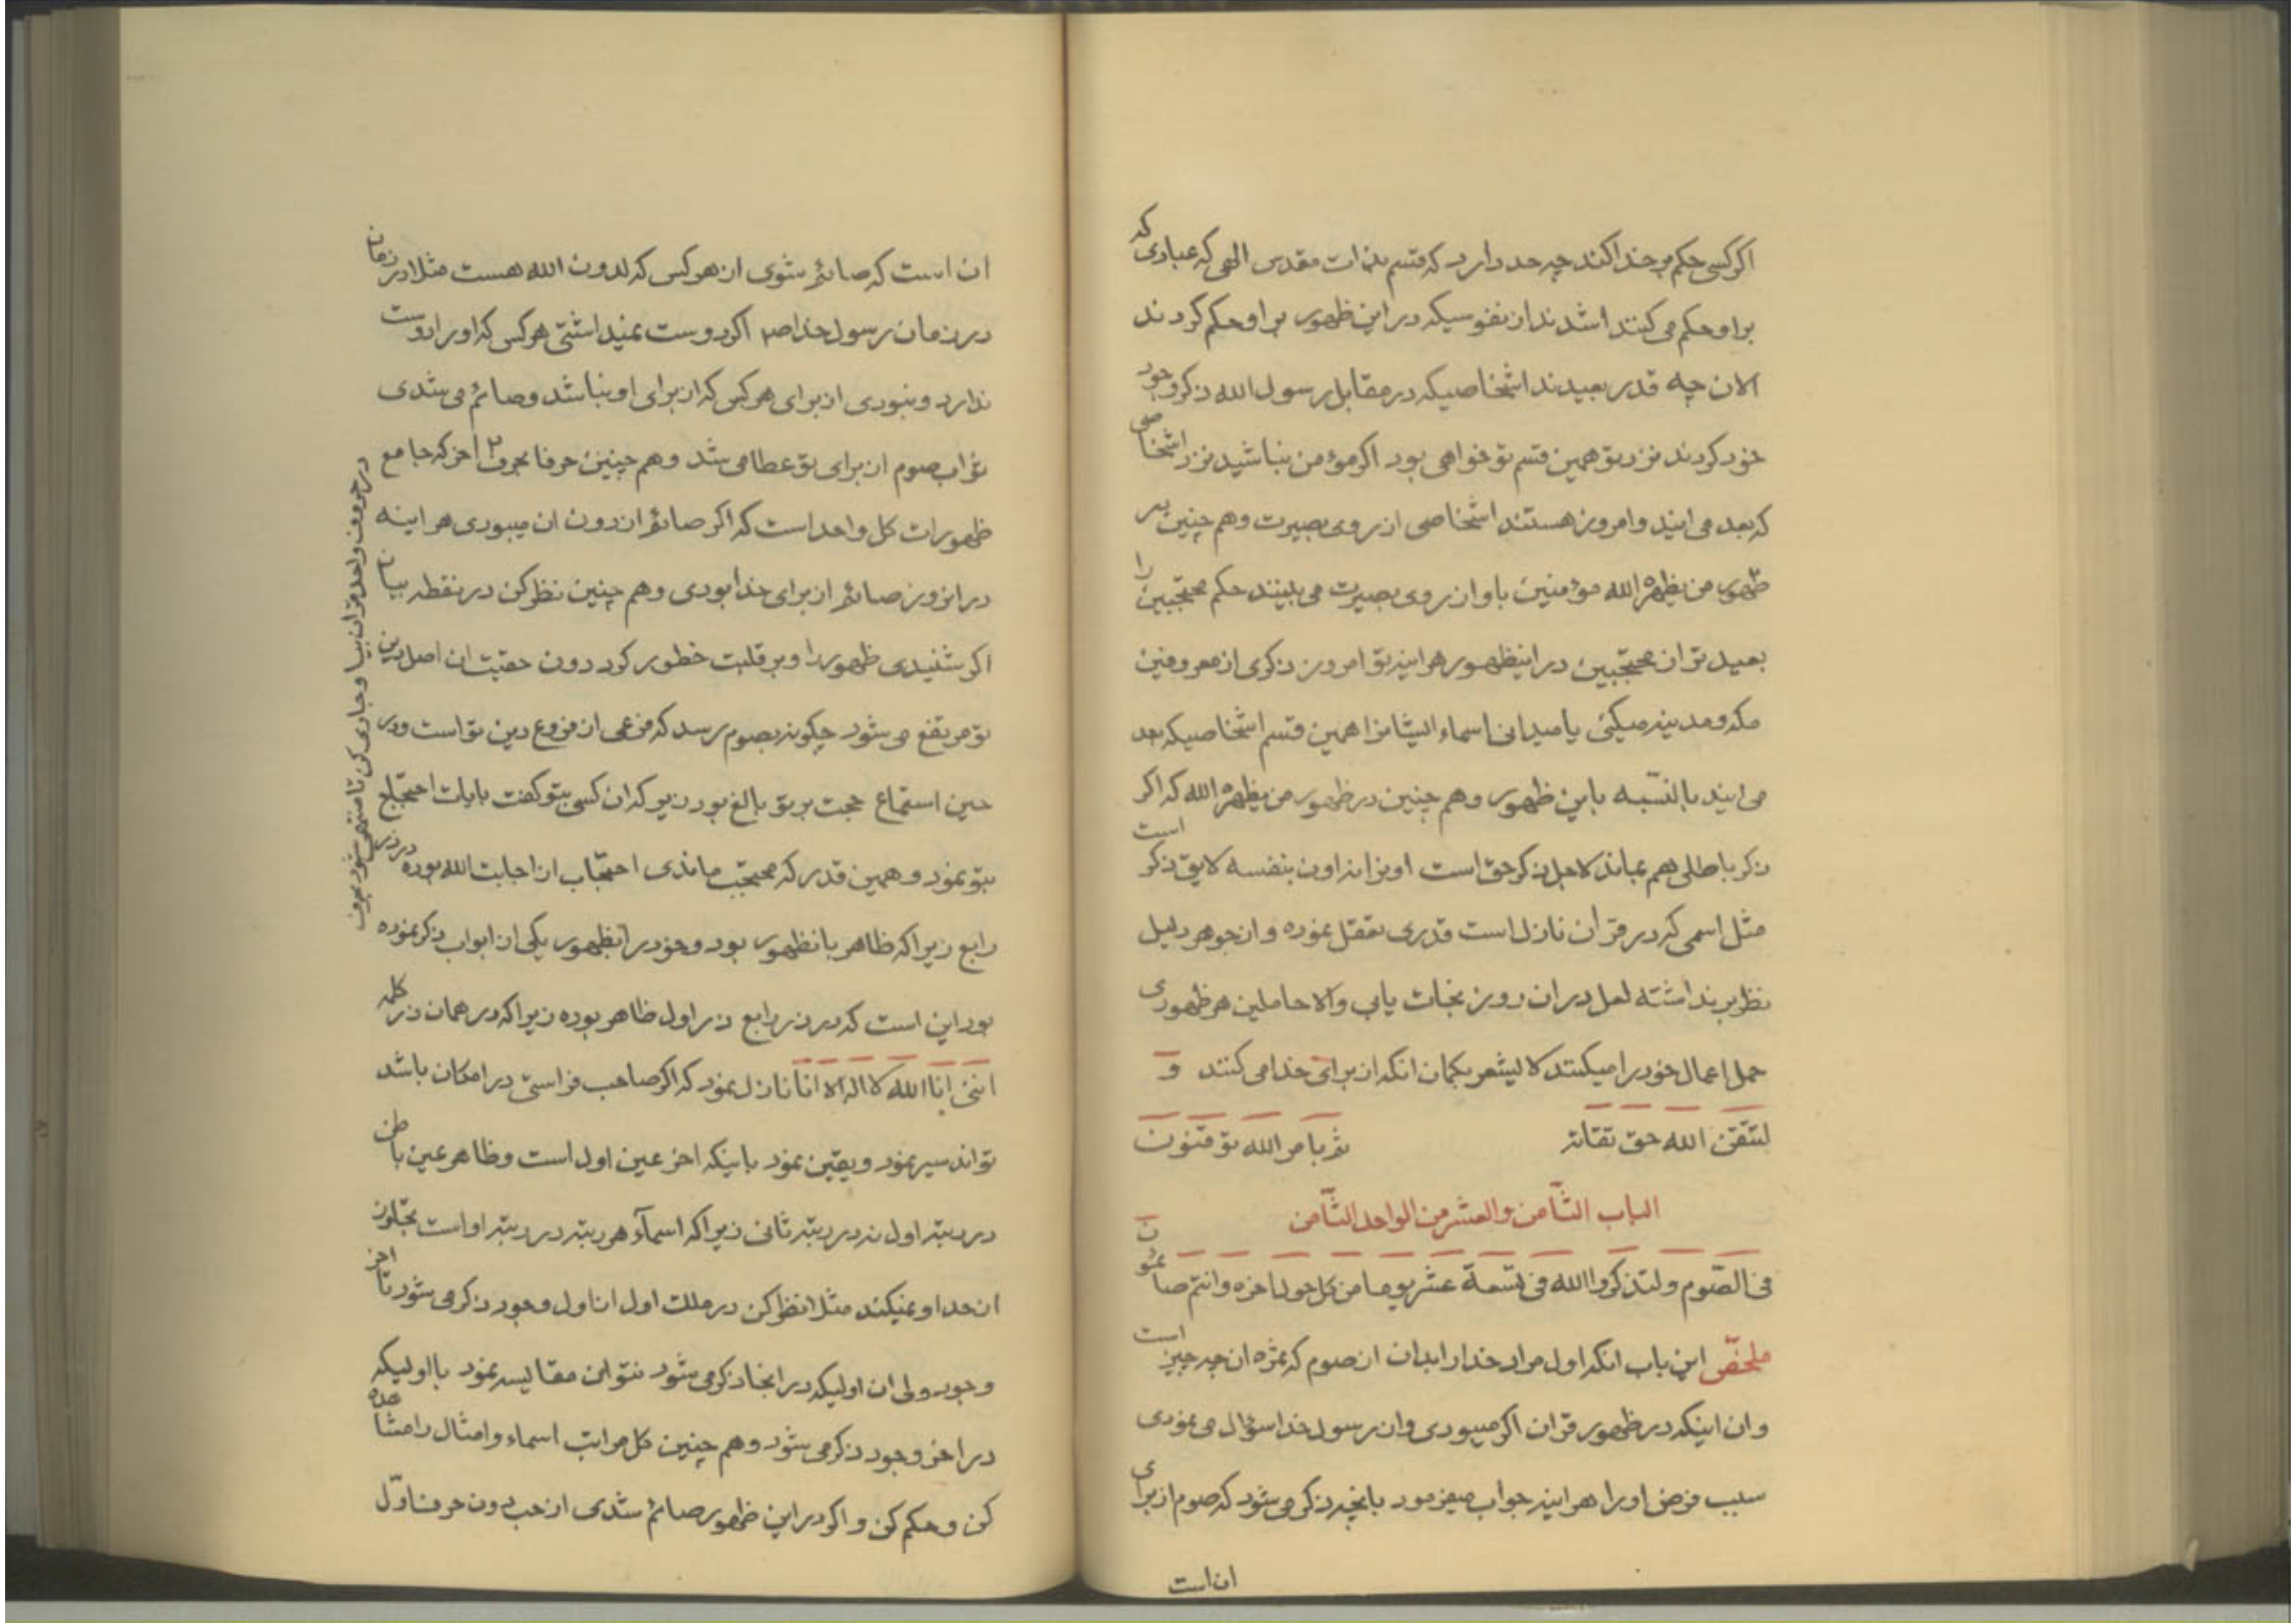 اکر کسی حکم بر خدا کند چه حد دارد که قسم بذات مقدس الهی که عبادی که
بر او حکم می کنند اشدند از نفوسیکه در این ظهور بر او حکم کردند
الان چه قدر بعیدند اشخاصیکه در مقابل رسول الله ذکر وجود
خود کردند نزد تو همین قسم تو خواهی بود اکر مؤمن نباشید نزد اشخاصی
که بعد می ایند و امروز هستند اشخاصی از روی بصیرت و هم چنین در
ظهور من یظهره الله مؤمنین باو از روی بصیرت می بینند حکم محتجبین را
بعید تو از محتجبین در اینظهور هر اینه تو امروز ذکری از معروفین
مکه و مدینه میکنی یا میدانی اسماء ایشانرا همین قسم اشخاصیکه بعد
می ایند بالنسّبه باین ظهور و هم چنین در ظهور من یظهره الله که اکر
ذکر باطلی هم بماند لاجل ذکر حق است او نزانه اون بنفسه لایق ذکر است
مثل اسمی که در قران نازل است قدری تعقل نموده و از جوهر دلیل
نظر برنداشته لعل در ان روز نجات یابی و الا حاملین هر ظهوری
حمل اعمال خود را میکنند لا لیشعر بکمان انکه از برای خدا می کنند و
لتتّقن الله حق تقاته ثم بامر الله توقنون
الباب الثّامن والعشر من الواحد الثّامن
فی الصّوم ولتذکروا الله فی تسعة عشر یوما من کل حول اخره وانتم صائمون
ملخص این باب انکه اول مراد خدا را بدان از صوم که ثمره ان چه چیز است
وان اینکه در ظهور قران اکر میبودی و از رسول خدا سؤال می نمودی
سبب فرض او را هر اینه جواب میفرمود بانچه ذکر می شود که صوم از برای
ان است
ان است که صائم شوی از هر کس که لدون الله هست مثلا در زمان
در زمان رسول خدا ص اکر دوست نمیداشتی هر کس که او را دوست
ندارد و نبودی از برای هر کس که از برای او نباشد و صائم می شدی
ثواب صوم از برای تو عطا می شد و هم چنین حرفا بحرف تا اخر که جامع
ظهورات کل واحد است که اکر صائم از دون ان میبودی هر اینه
در انروز صائم از برای خدا بودی و هم چنین نظر کن در نقطه بیان
اکر شنیدی ظهور را و بر قلبت خطور کرد دون حقیت ان اصل دین
تو مرتفع می شود چکونه بصوم رسد که فرعی از فروع دین تو است و در
حین استماع حجت بر تو بالغ بود زیرا که ان کسی بتو کفت بایات احتجاج
بتو نمود و همین قدر که محتجب ماندی احتجاب از اجابت الله بوده در ذر
رابع زیرا که ظاهر بانظهور بود و خود در انظهور یکی از ابواب ذکر نموده
بود این است که در ذر رابع ذر اول ظاهر بوده زیرا که در همان ذر کلمه
اننی انا الله لا اله الا انا نازل نمود که اکر صاحب فراستی در امکان باشد
تواند سیر نمود و یقین نمود باینکه اخر عین اول است و ظاهر عین باطن
در رتبه اول نه در رتبه ثانی زیرا که اسمآء هر رتبه در رتبه او است تجاوز
از حد او نمیکند مثلا نظر کن در ملک اول از اول وجود ذکر می شود تا اخر
وجود ولی ان اولیکه در اینجا ذکر می شود نتوان مقایسه نمود با اولیکه
در اخر وجود ذکر می شود و هم چنین کل مراتب اسماء و امثال را مشاهده
کن و حکم کن و اکر در این ظهور صائم شدی از حب دون حرف اوّل
در حروف واحد قران بیا و جاری کن تا منتهی شود بحرف